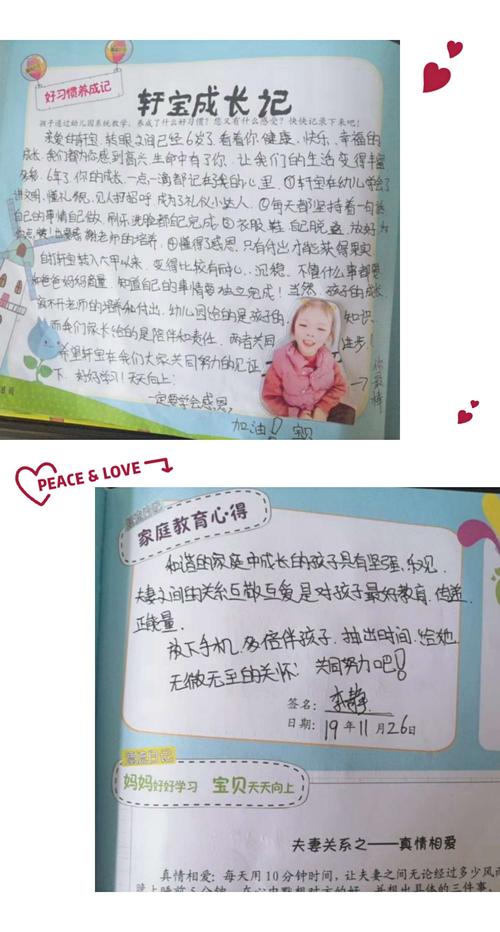 好习惯养成记
轩宝成长记
孩子通过幼儿园系统教学，养成了什么好习惯？您又有什么感受？快快记录下来吧！
亲爱的轩宝，转眼之间已经6岁了，看着你健康、快乐、幸福的
成长，我们都为你感到高兴，生命中有了你，让我们的生活变得丰富
多彩，6年了，你的成长一点一滴都记在我的心里。①轩宝在幼儿学会了
讲文明，懂礼貌，见人打招呼，成为了礼仪小达人。②每天都坚持着
自己的事情自己做，刷牙洗脸都自己完成③衣服，鞋，自己脱，放好
老师的培养，④懂得了感恩，只有付出才能获得果实
自轩宝转入大甲以来，变得比较有耐心，沉稳，不管什么事都要
和爸爸妈妈商量，知道自己的事情要独立完成！当然，孩子的成长
离不开老师的培养和付出，幼儿园给的是孩子的知识，
而我们家长给的是陪伴和责任，两者共同进步！
希望轩宝在我们大家共同努力的见证
下，好好学习！天天向上！
你最棒
一定要学会感恩，
加油！宝贝
PEACE & LOVE
家庭教育心得
和谐的家庭中成长的孩子具有坚强，乐观，
夫妻之间的关系互敬互爱是对孩子最好教育，传递
正能量。
放下手机，多陪伴孩子，抽出时间，给她
无微无至的关怀！共同努力吧！
签名：李静
日期：19年11月26日
妈妈好好学习 宝贝天天向上
夫妻关系之——真情相爱
真情相爱：每天用10分钟时间，让夫妻之间无论经过多少风
晚上睡前5分钟，在心中默想对方的好，并想出具体的三件事，